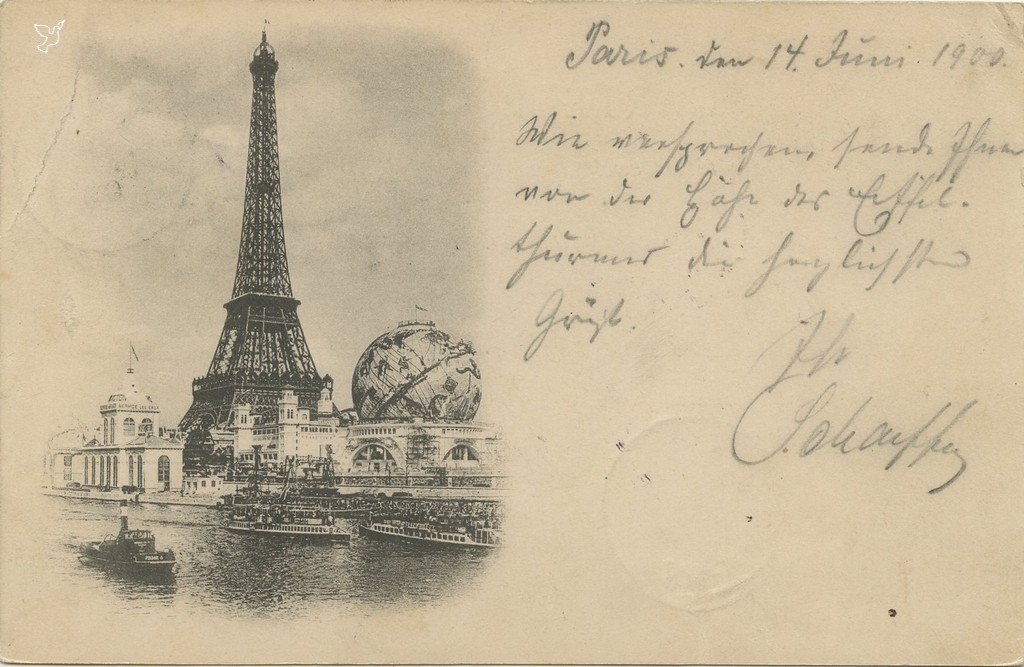 Paris. den 14. Juni 1900.
Wie versprochen, sende Ihnen
von der Höhe des Eiffel-
thurmes die herzlichsten
Grüße.
Ihr